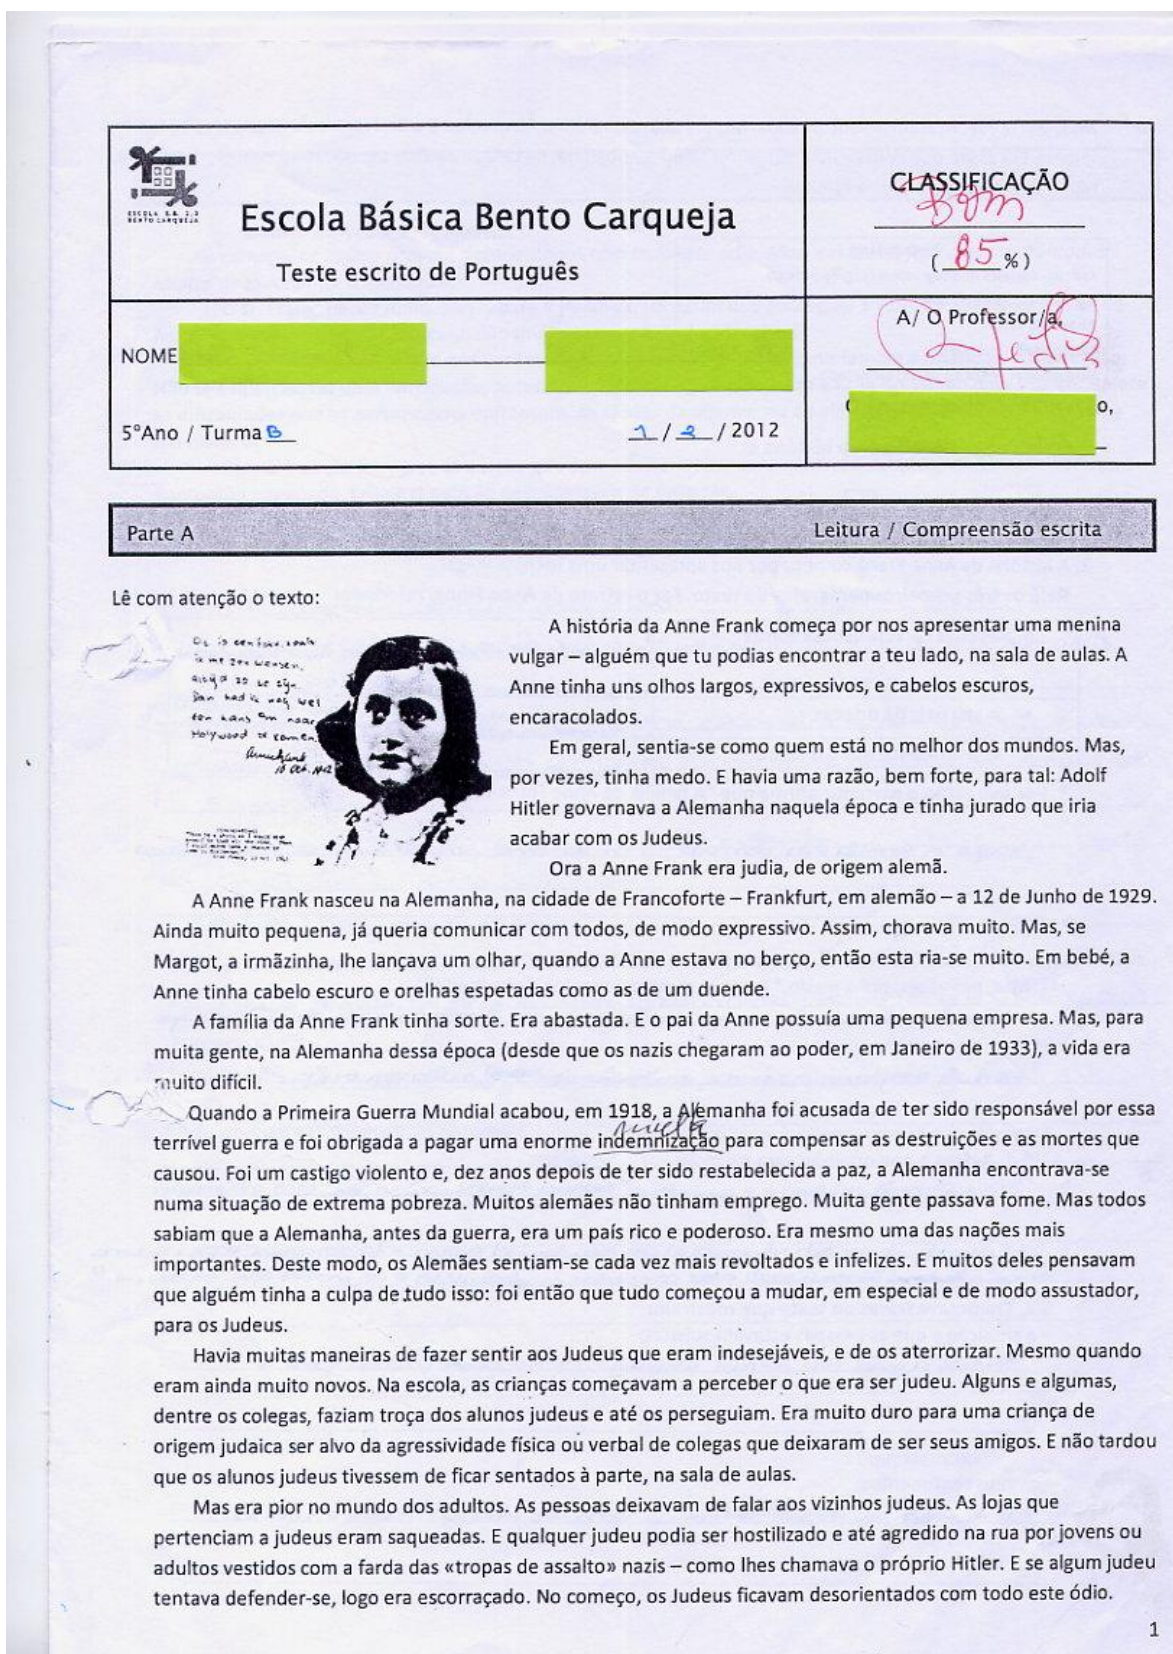 ESCOLA E.B. 2,3
BENTO CARQUEJA
Escola Básica Bento Carqueja
Teste escrito de Português
CLASSIFICAÇÃO
Bom
( 85 %)
NOME
A/ O Professor/a,
o,
5ºAno / Turma B
1 / 2 / 2012
Parte A
Leitura / Compreensão escrita
Lê com atenção o texto:
A história da Anne Frank começa por nos apresentar uma menina
vulgar – alguém que tu podias encontrar a teu lado, na sala de aulas. A
Anne tinha uns olhos largos, expressivos, e cabelos escuros,
encaracolados.
Em geral, sentia-se como quem está no melhor dos mundos. Mas,
por vezes, tinha medo. E havia uma razão, bem forte, para tal: Adolf
Hitler governava a Alemanha naquela época e tinha jurado que iria
acabar com os Judeus.
Ora a Anne Frank era judia, de origem alemã.
A Anne Frank nasceu na Alemanha, na cidade de Francoforte – Frankfurt, em alemão – a 12 de Junho de 1929.
Ainda muito pequena, já queria comunicar com todos, de modo expressivo. Assim, chorava muito. Mas, se
Margot, a irmãzinha, lhe lançava um olhar, quando a Anne estava no berço, então esta ria-se muito. Em bebé, a
Anne tinha cabelo escuro e orelhas espetadas como as de um duende.
A família da Anne Frank tinha sorte. Era abastada. E o pai da Anne possuía uma pequena empresa. Mas, para
muita gente, na Alemanha dessa época (desde que os nazis chegaram ao poder, em Janeiro de 1933), a vida era
muito difícil.
Quando a Primeira Guerra Mundial acabou, em 1918, a Alemanha foi acusada de ter sido responsável por essa
multa
terrível guerra e foi obrigada a pagar uma enorme indemnização para compensar as destruições e as mortes que
causou. Foi um castigo violento e, dez anos depois de ter sido restabelecida a paz, a Alemanha encontrava-se
numa situação de extrema pobreza. Muitos alemães não tinham emprego. Muita gente passava fome. Mas todos
sabiam que a Alemanha, antes da guerra, era um país rico e poderoso. Era mesmo uma das nações mais
importantes. Deste modo, os Alemães sentiam-se cada vez mais revoltados e infelizes. E muitos deles pensavam
que alguém tinha a culpa de tudo isso: foi então que tudo começou a mudar, em especial e de modo assustador,
para os Judeus.
Havia muitas maneiras de fazer sentir aos Judeus que eram indesejáveis, e de os aterrorizar. Mesmo quando
eram ainda muito novos. Na escola, as crianças começavam a perceber o que era ser judeu. Alguns e algumas,
dentre os colegas, faziam troça dos alunos judeus e até os perseguiam. Era muito duro para uma criança de
origem judaica ser alvo da agressividade física ou verbal de colegas que deixaram de ser seus amigos. E não tardou
que os alunos judeus tivessem de ficar sentados à parte, na sala de aulas.
Mas era pior no mundo dos adultos. As pessoas deixavam de falar aos vizinhos judeus. As lojas que
pertenciam a judeus eram saqueadas. E qualquer judeu podia ser hostilizado e até agredido na rua por jovens ou
adultos vestidos com a farda das «tropas de assalto» nazis – como lhes chamava o próprio Hitler. E se algum judeu
tentava defender-se, logo era escorraçado. No começo, os Judeus ficavam desorientados com todo este ódio.
1